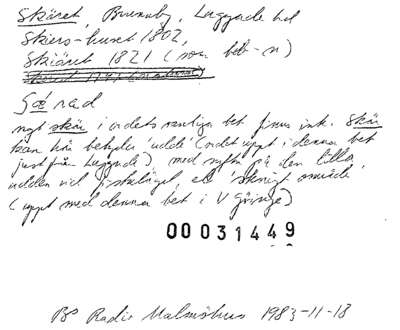 Skäret, Brunnby, Luggude hd
Skiers-huset 1802,
Skiäret 1821 (som beb-n)
Gä rad
ngt skär i ordets vanliga bet finns ink. Skär
kan här betyda 'udde' (ordet uppt i denna bet
just från Luggude) med syfte på den lilla
udden vid fiskeläget, el 'skärigt område'
(uppt med denna bet i V Göinge)
00031449
BP Radio Malmöhus 1983-11-18